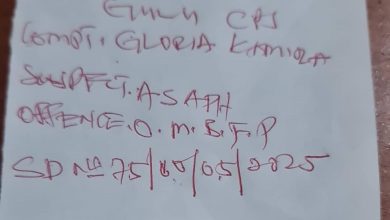 GULU CPS
COMPT. GLORIA KAMIRA
SUSPECT. ASAPH
OFFENCE. O. M. B. F. P
SD No 75/ /05/2025